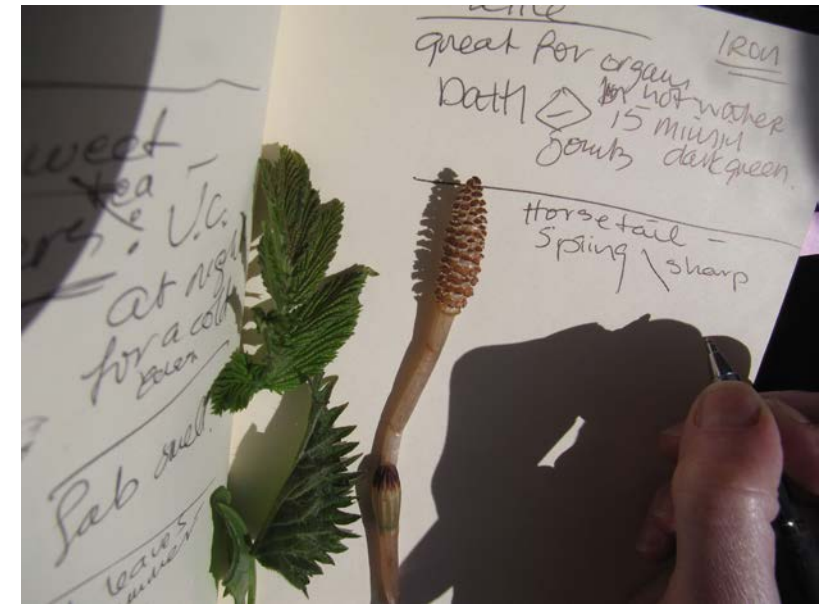 sweet
tea
: V.C.
at night
for a cold
Fab smell.
leaves
great for organs
IRON
Bath
in hot water
15 mins
dark green.
Horsetail –
Spring \ sharp